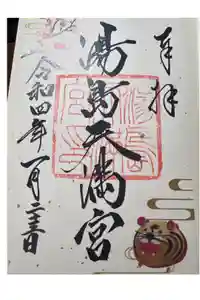 奉拝
湯島天満宮
令和四年一月二十三日